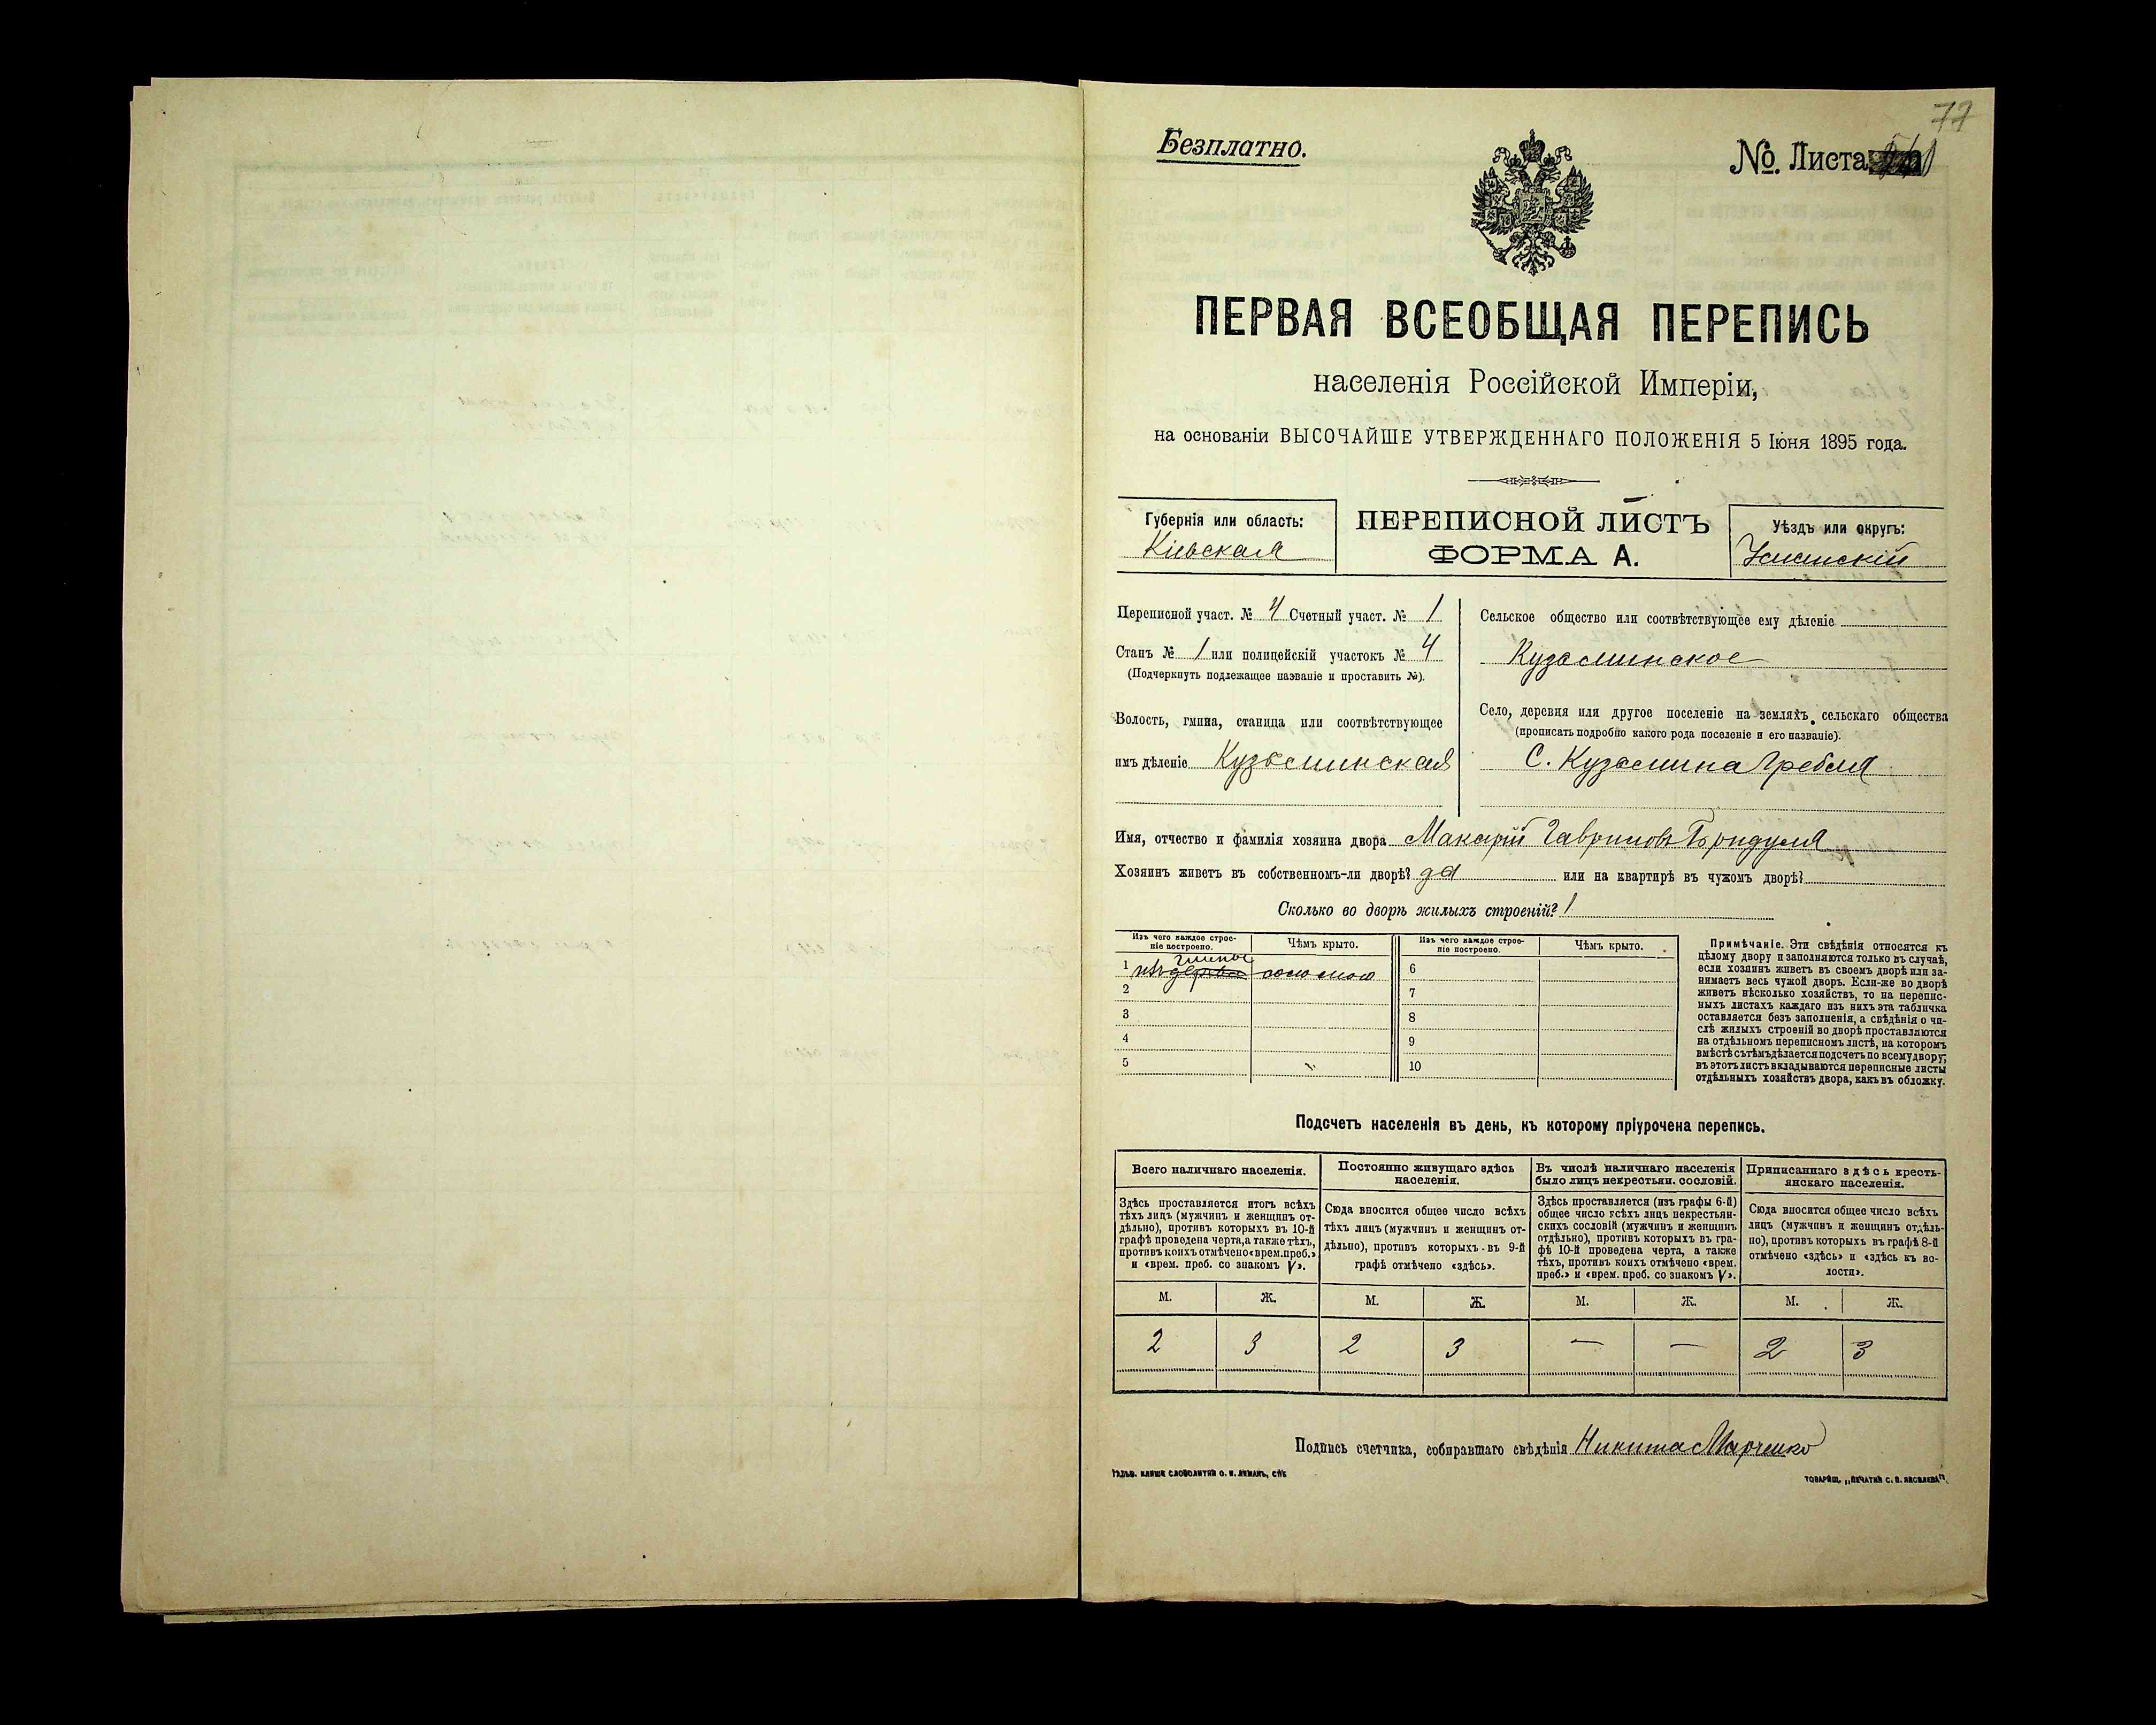 77
Безплатно.
№. Листа
ПЕРВАЯ ВСЕОБЩАЯ ПЕРЕПИСЬ
населенія Россійской Имперіи,
на основаніи ВЫСОЧАЙШЕ УТВЕРЖДЕННАГО ПОЛОЖЕНІЯ 5 Іюня 1895 года.
Губернія или область:
Кіевская
ПЕРЕПИСНОЙ ЛИСТЪ
ФОРМА А.
Уѣздъ или округъ:
Уманскій
Переписной участ. № 4 Счетный участ. № 1
Станъ № 1 или полицейскій участокъ № 4
(Подчеркнуть подлежащее названіе и проставить №).
Волость, гмина, станица или соотвѣтствующее
имъ дѣленіе Кузьминская
Сельское общество или соотвѣтствующее ему дѣленіе
Кузьминское
Село, деревня или другое поселеніе на земляхъ сельскаго общества
(прописать подробно какого рода поселеніе и его названіе).
С. Кузьмина Гребля
Имя, отчество и фамилія хозяина двора Макарій Гавриловъ
Хозяинъ живетъ въ собственномъ-ли дворѣ? да или на квартирѣ въ чужомъ дворѣ?
Сколько во дворѣ жилыхъ строеній? 1
Изъ чего каждое строе-
ніе построено.
Чѣмъ крыто.
Изъ чего каждое строе-
ніе построено.
Чѣмъ крыто.
глины
1 изъ дерева соломою
2
3
4
5
6
7
8
9
10
Примѣчаніе. Эти свѣдѣнія относятся къ
цѣлому двору и заполняются только въ случаѣ,
если хозяинъ живетъ въ своемъ дворѣ или за-
нимаетъ весь чужой дворъ. Если-же во дворѣ
живетъ нѣсколько хозяйствъ, то на перепис-
ныхъ листахъ каждаго изъ нихъ эта табличка
оставляется безъ заполненія, а свѣдѣнія о чи-
слѣ жилыхъ строеній во дворѣ проставляются
на отдѣльномъ переписномъ листѣ, на которомъ
вмѣстѣ съ тѣмъ дѣлается подсчетъ по всему двору;
въ этотъ листъ вкладываются переписные листы
отдѣльныхъ хозяйствъ двора, какъ въ обложку.
Подсчетъ населенія въ день, къ которому пріурочена перепись.
Всего наличнаго населенія.
Здѣсь проставляется итогъ всѣхъ
тѣхъ лицъ (мужчинъ и женщинъ от-
дѣльно), противъ которыхъ въ 10-й
графѣ проведена черта, а также тѣхъ,
противъ коихъ отмѣчено «врем. преб.»
и «врем. преб. со знакомъ V».
Постоянно живущаго здѣсь
населенія.
Сюда вносится общее число всѣхъ
тѣхъ лицъ (мужчинъ и женщинъ от-
дѣльно), противъ которыхъ въ 9-й
графѣ отмѣчено «здѣсь».
Въ числѣ наличнаго населенія
было лицъ некрестьян. сословій.
Здѣсь проставляется (изъ графы 6-й)
общее число всѣхъ лицъ некрестьян-
скихъ сословій (мужчинъ и женщинъ
отдѣльно), противъ которыхъ въ гра-
фѣ 10-й проведена черта, а также
тѣхъ, противъ коихъ отмѣчено «врем.
преб.» и «врем. преб. со знакомъ V».
Приписаннаго здѣсь кресть-
янскаго населенія.
Сюда вносится общее число всѣхъ
лицъ (мужчинъ и женщинъ отдѣль-
но), противъ которыхъ въ графѣ 8-й
отмѣчено «здѣсь» и «здѣсь къ во-
лости».
М. Ж. М. Ж. М. Ж. М. Ж.
2 3 2 3 — — 2 3
Подпись счетчика, собиравшаго свѣдѣнія Никита Марченко
Гальв. клише словолитни О. И. Леманъ, СПБ
Товарищ. „Печатня С. П. Яковлева“.